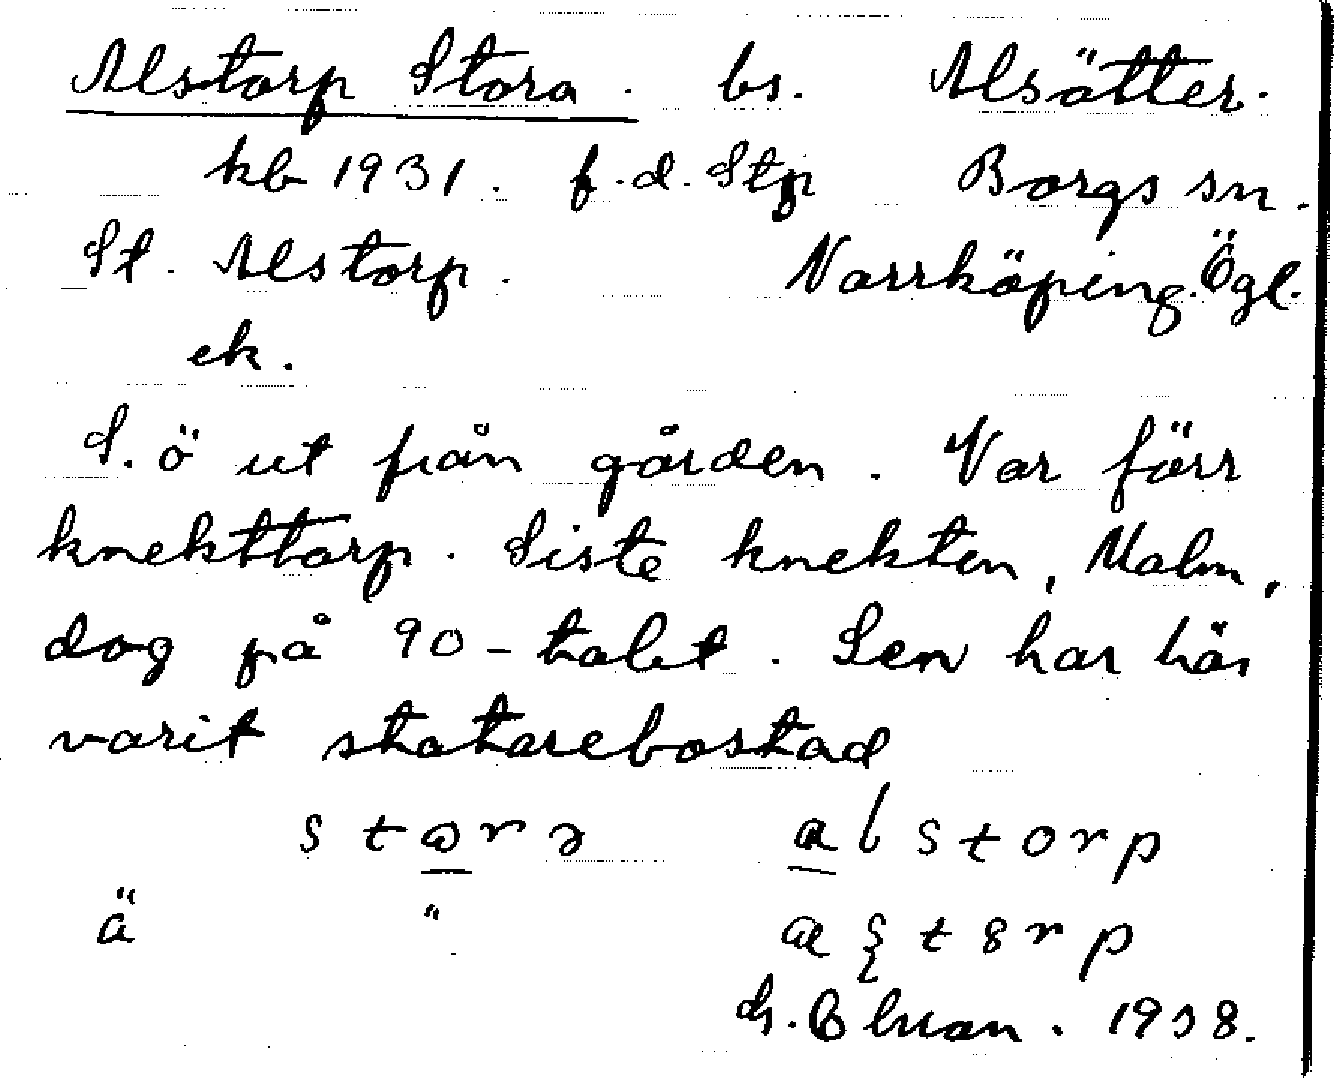 Alstorp Stora. bs. Alsätter.
kb 1931. f.d. Stp Borgs sn.
St. Alstorp. Norrköping. Ögl.
ek.
S. ö ut från gården. Var förr
knekttorp. Siste knekten, Malm,
dog på 90-talet. Sen har här
varit statarebostad
alstorp
ä "
1938.